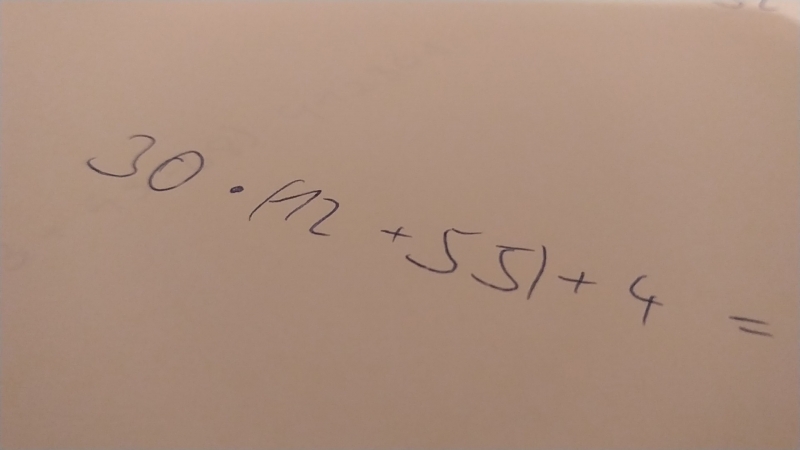 30 · (12 + 55) + 4 =